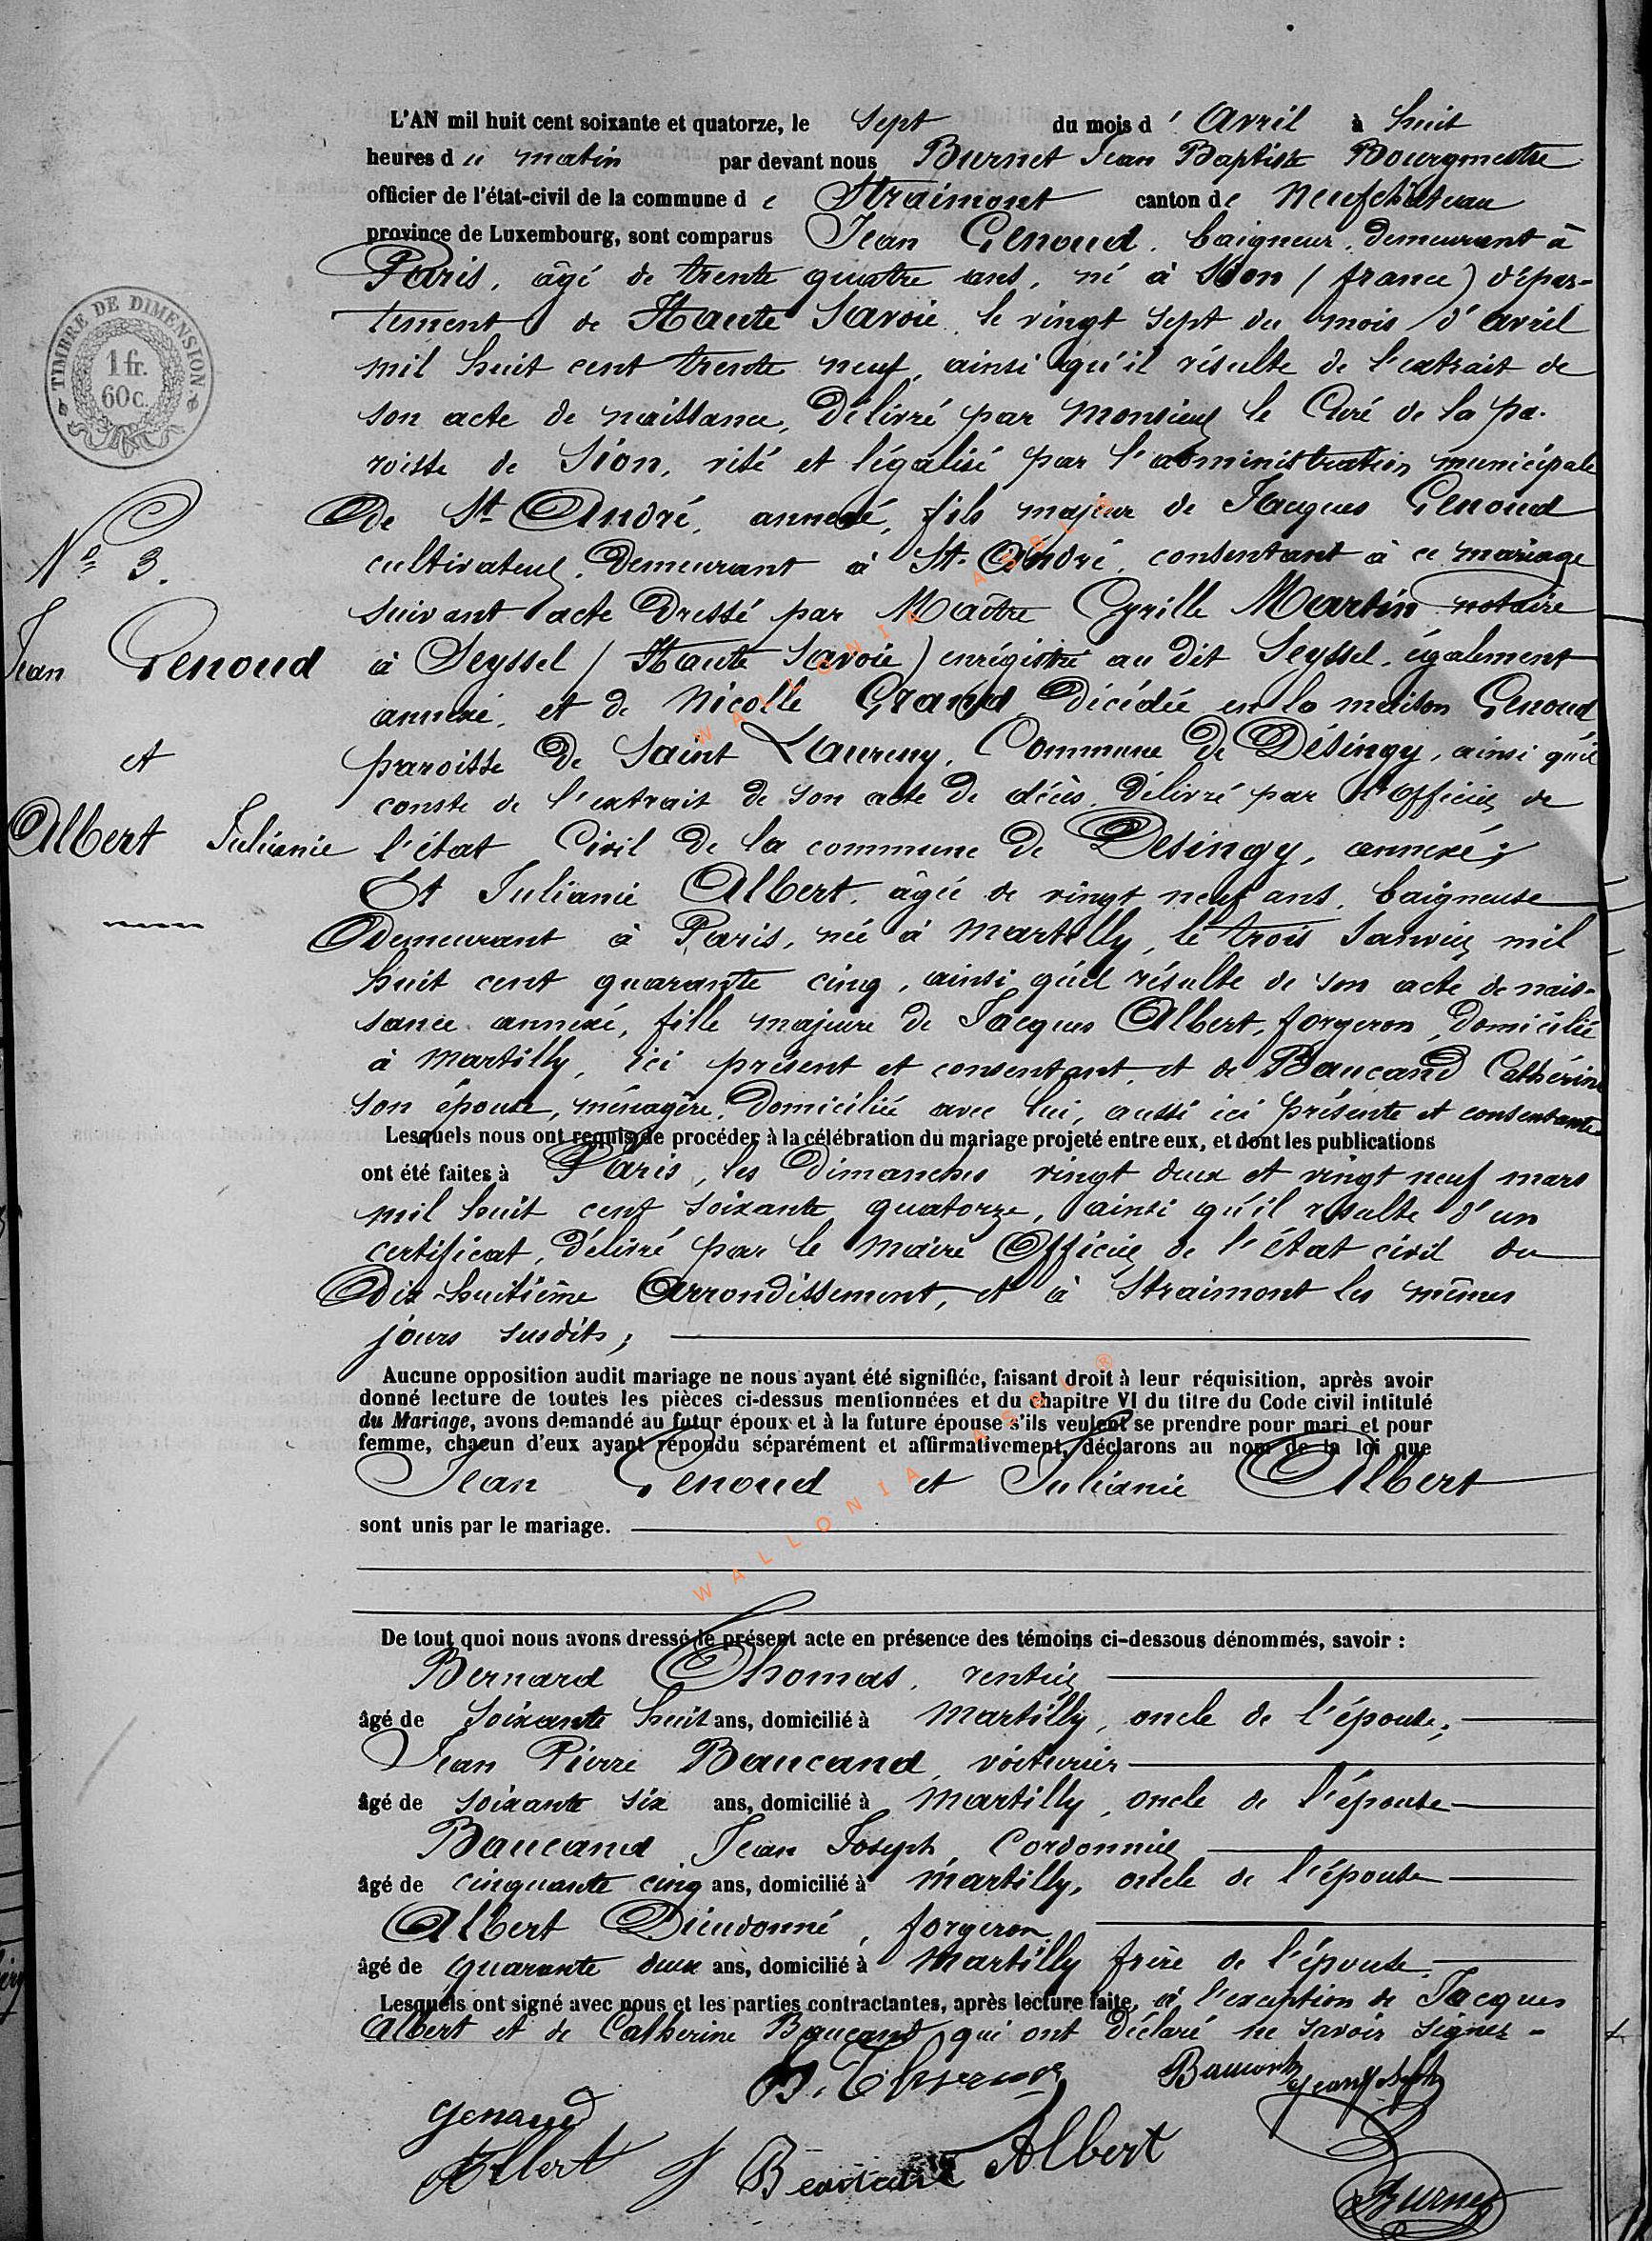 L'AN mil huit cent soixante et quatorze, le Sept du mois d' Avril à huit
heures du matin par devant nous Burnet Jean Baptiste Bourgmestre
officier de l'état-civil de la commune de Straimont canton de Neufchâteau
province de Luxembourg, sont comparus Jean Genoud, baigneur, demeurant à
Paris, âgé de trente quatre ans, né à Sion (france) dépar-
tement de Haute Savoie, le vingt sept du mois d'avril
mil huit cent trente neuf, ainsi qu'il résulte de l'extrait de
son acte de naissance, délivré par Monsieur le Curé de la pa-
roisse de Sion, visé et légalisé par l'administration municipale
de St André, annexé, fils majeur de Jacques Genoud
cultivateur, demeurant à St. André, consentant à ce mariage
suivant acte dressé par Maître Cyrille Martin notaire
à Seyssel (Haute Savoie) enrégistré au dit Seyssel, également
annexé, et de Nicolle Grand, décédée en la maison Genoud
paroisse de Saint Laureny, Commune de Désingy, ainsi qu'il
conste de l'extrait de son acte de décès, délivré par l'officier de
l'état Civil de la commune de Desingy, annexé;
Et Julianie Albert, âgée de vingt neuf ans, baigneuse
Demeurant à Paris, née à Martilly, le trois Janvier mil
huit cent quarante cinq, ainsi qu'il résulte de son acte de nais-
sance annexé, fille majeure de Jacques Albert, forgeron, domicilié
à Martilly, ici présent et consentant, et de Baucand Cathérine
son épouse, ménagère, domiciliée avec lui, aussi ici présente et consentante
Lesquels nous ont requis de procéder à la célébration du mariage projeté entre eux, et dont les publications
ont été faites à Paris, les Dimanches vingt deux et vingt neuf mars
mil huit cent soixante quatorze, ainsi qu'il résulte d'un
certificat, délivré par le Maire Officier de l'état civil du
Dix-huitième Arrondissement, et à Straimont les mêmes
jours susdits;
Aucune opposition audit mariage ne nous ayant été signifiée, faisant droit à leur réquisition, après avoir
donné lecture de toutes les pièces ci-dessus mentionnées et du chapitre VI du titre du Code civil intitulé
du Mariage, avons demandé au futur époux et à la future épouse s'ils veulent se prendre pour mari et pour
femme, chacun d'eux ayant répondu séparément et affirmativement, déclarons au nom de la loi que
Jean Genoud et Julianie Albert
sont unis par le mariage.
De tout quoi nous avons dressé le présent acte en présence des témoins ci-dessous dénommés, savoir :
Bernard Thomas, rentier
âgé de soixante huit ans, domicilié à Martilly, oncle de l'épouse;
Jean Pierre Baucand, voiturier
âgé de soixante six ans, domicilié à Martilly, oncle de l'épouse
Baucand Jean Joseph, Cordonnier
âgé de cinquante cinq ans, domicilié à Martilly, oncle de l'épouse
Albert Dieudonné, forgeron
âgé de quarante deux ans, domicilié à Martilly frère de l'épouse.
Lesquels ont signé avec nous et les parties contractantes, après lecture faite, à l'exception de Jacques
Albert et de Catherine Baucand, qui ont déclaré ne savoir signer -
genaud
Albert J
Albert
Burnet
TIMBRE DE DIMENSION
1 fr.
60 c.
No 3.
Jean Genoud
et
Albert Julianie
WALLONIA ASBL ®
WALLONIA ASBL ®